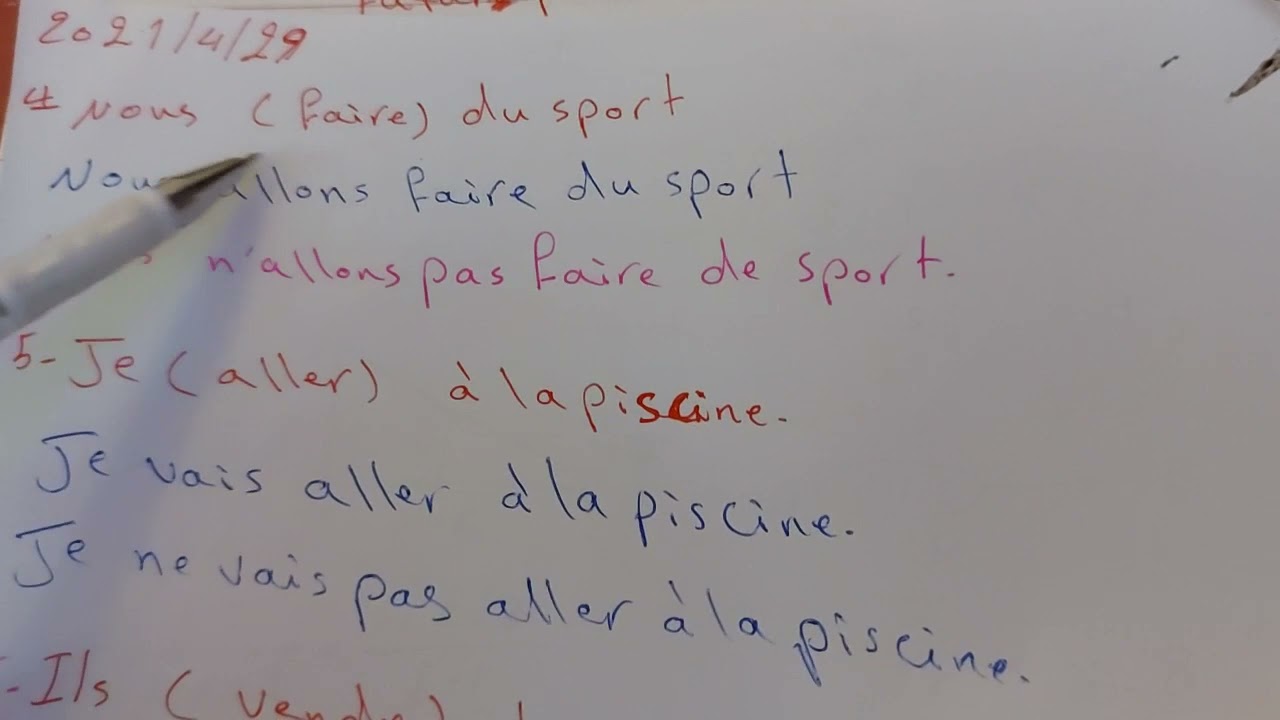 2021/4/29
4 Nous (faire) du sport
allons faire du sport
n'allons pas faire de sport.
5- Je (aller) à la piscine.
Je vais aller à la piscine.
Je ne vais pas aller à la piscine.
- Ils (